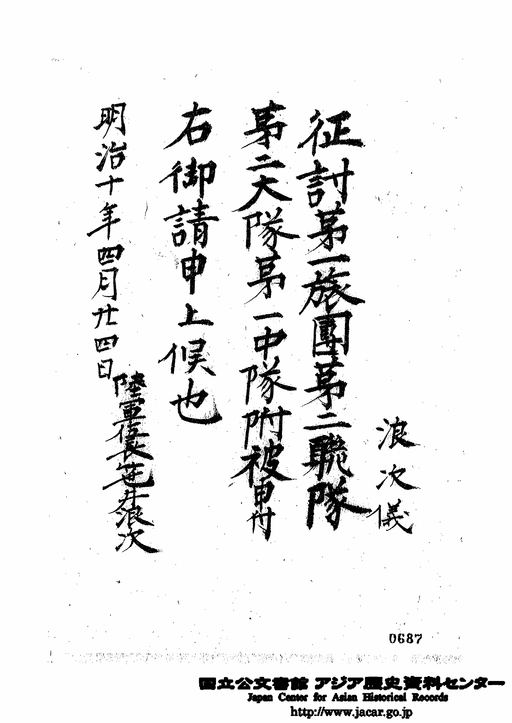 浪次儀
征討第一旅團第二聯隊
第二大隊第一中隊附被申付
右御請申上候也
明治十年四月廿四日
陸軍伍長笹井浪次
0687
国立公文書館 アジア歴史資料センター
Japan Center for Asian Historical Records
http://www.jacar.go.jp